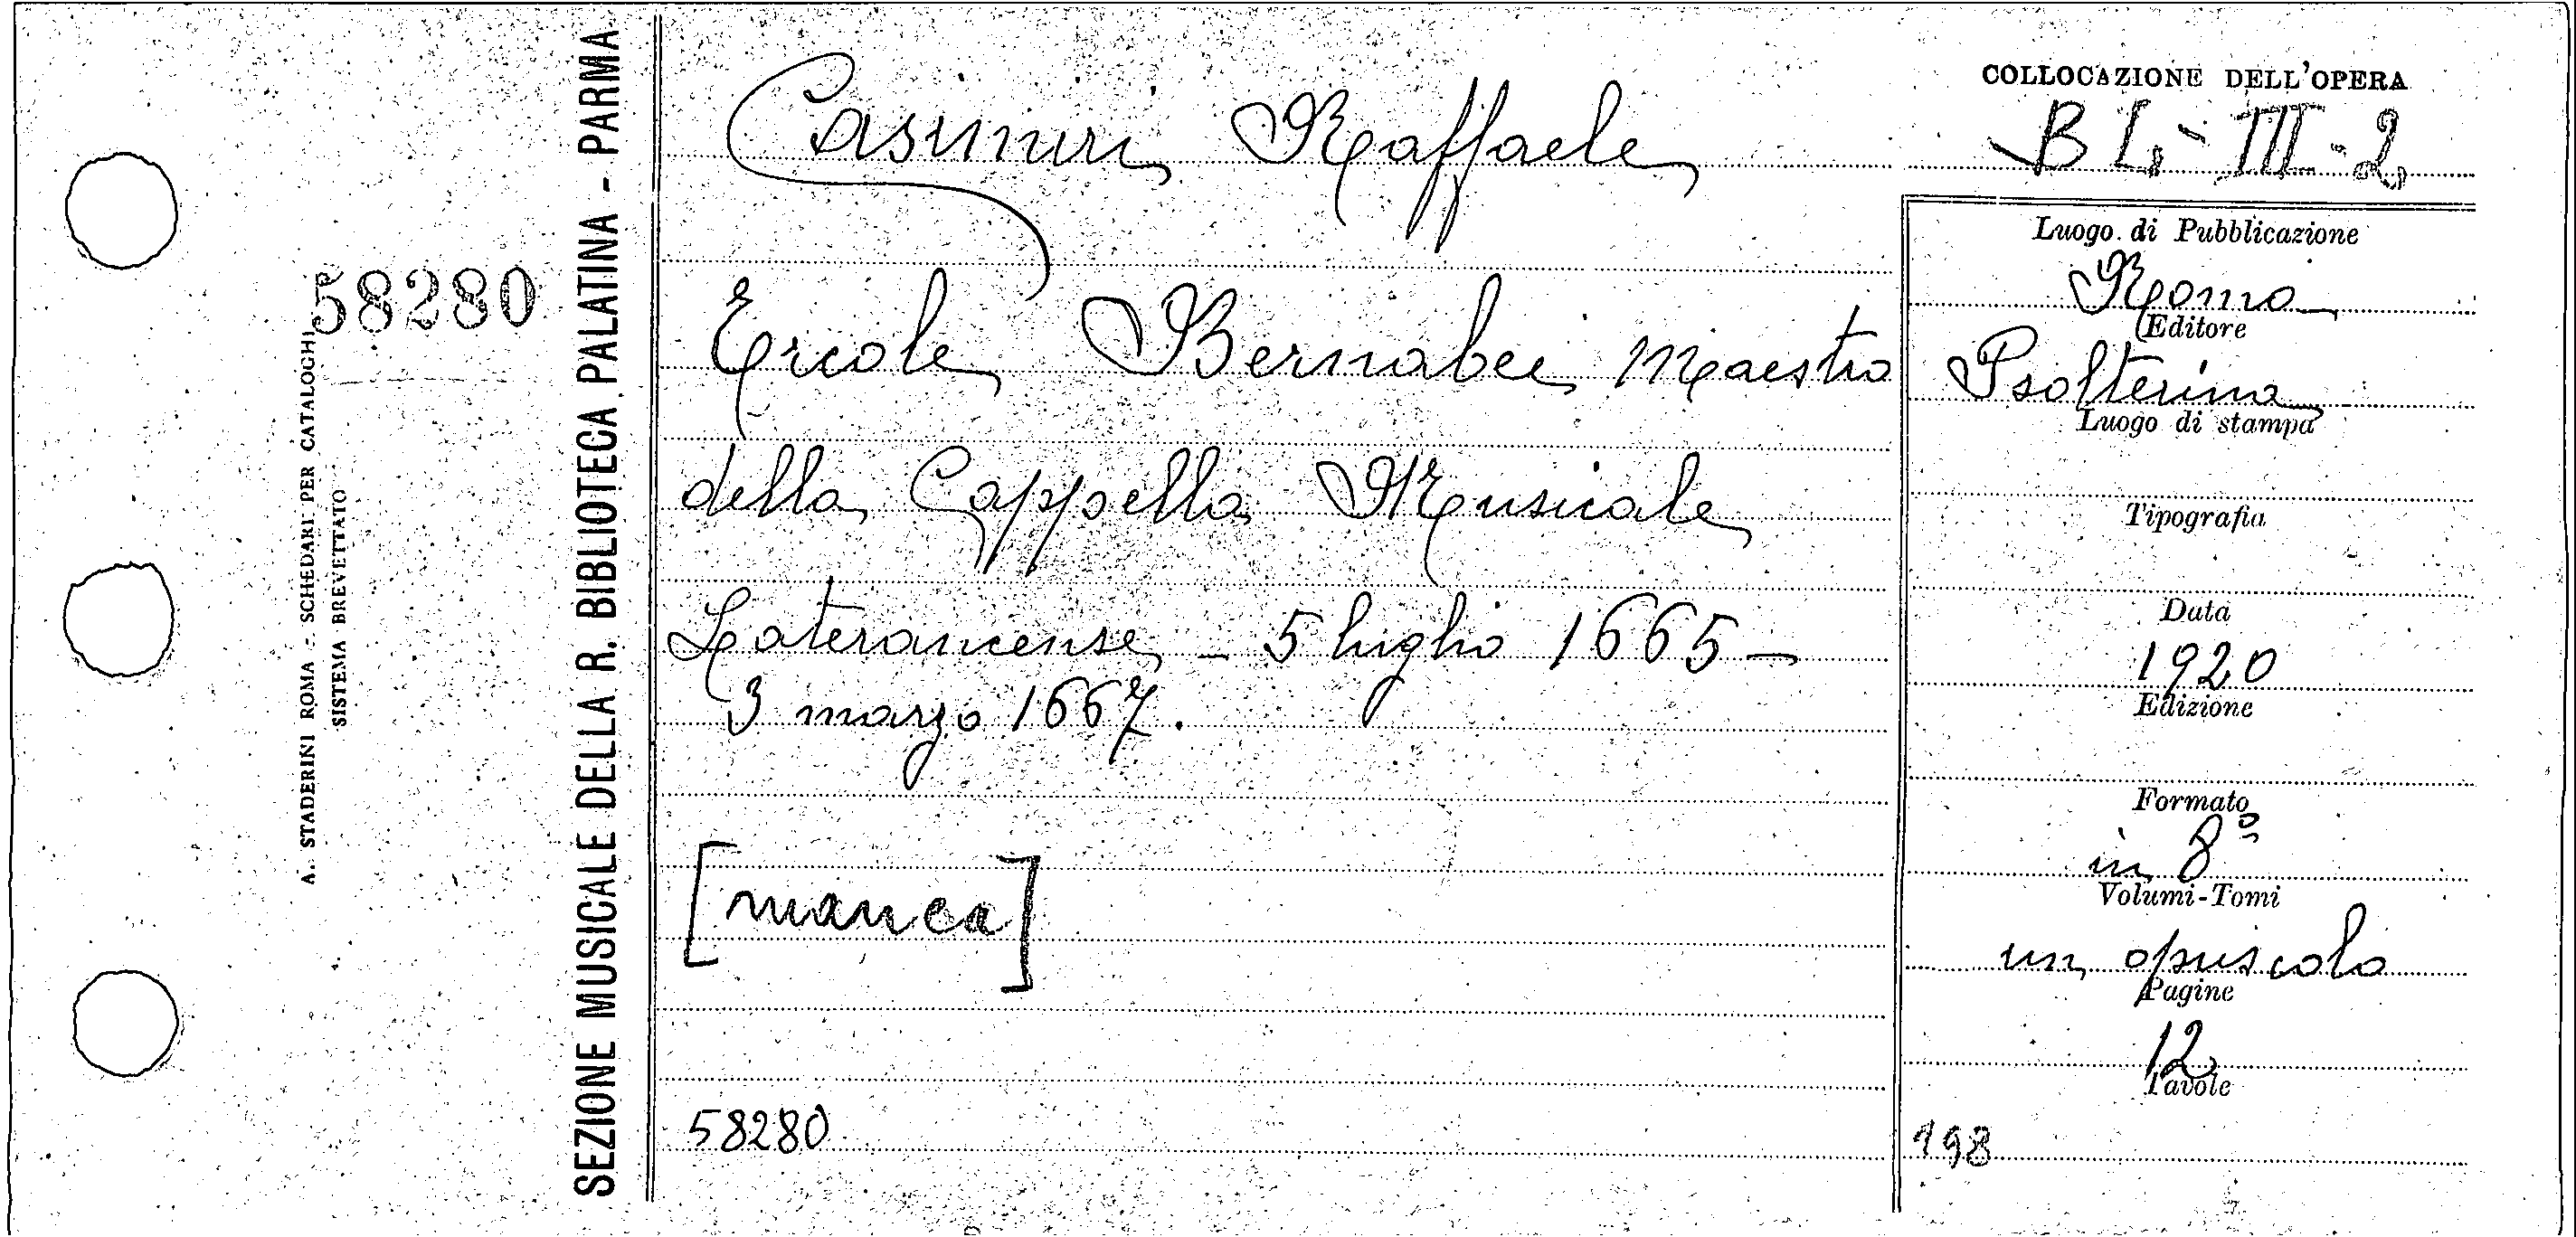 58280
A. STADERINI ROMA - SCHEDARI PER CATALOGHI
SISTEMA BREVETTATO
SEZIONE MUSICALE DELLA R. BIBLIOTECA PALATINA - PARMA
Casimiri Raffaele
Ercole Bernabei Maestro
della Cappella Musicale
Lateranense - 5 luglio 1665 -
3 marzo 1667.
[manca]
58280
COLLOCAZIONE DELL'OPERA
B L - III - 2
Luogo di Pubblicazione
Roma
Editore
Psalterium
Luogo di stampa
Tipografia
Data
1920
Edizione
Formato
in 8º
Volumi-Tomi
un opuscolo
Pagine
12
Tavole
198